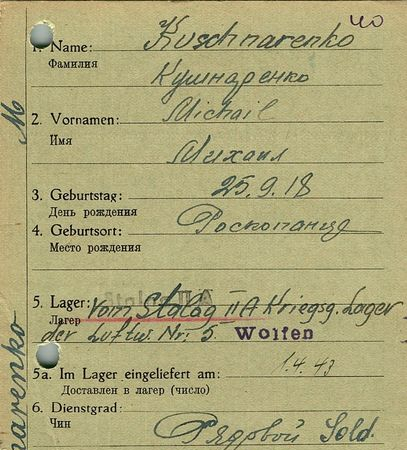 40
1. Name: Kuschnarenko
Фамилия
Кушнаренко
2. Vornamen: Michail
Имя
Михаил
3. Geburtstag: 25.9.18
День рождения
4. Geburtsort: Роскопанця
Место рождения
5. Lager: Stalag II A
Лагер
Vom Stalag II A Kriegsg. Lager
der Luftw. Nr. 5 Wolfen
5a. Im Lager eingeliefert am: 1.4.43
Доставлен в лагер (число)
6. Dienstgrad:
Чин
Рядровой Sold.
M
narenko